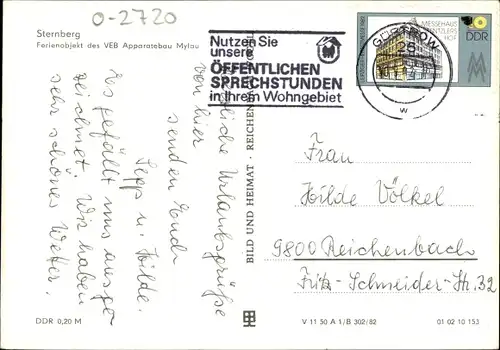 0-2720
Sternberg
Ferienobjekt des VEB Apparatebau Mylau
Nutzen Sie
unsere
ÖFFENTLICHEN
SPRECHSTUNDEN
in Ihrem Wohngebiet
GÜSTROW
w
MESSEHAUS
HOF
DDR
Urlaubsgrüße
von hier
senden Euch
Sepp u. Hilde.
Es gefällt uns ausge-
zeichnet. Wir haben
sehr schönes Wetter.
BILD UND HEIMAT · REICHENBACH
Frau
Hilde Völkel
9800 Reichenbach
Fritz-Schneider-Str. 32
DDR 0,20 M
V 11 50 A 1/B 302/82
01 02 10 153